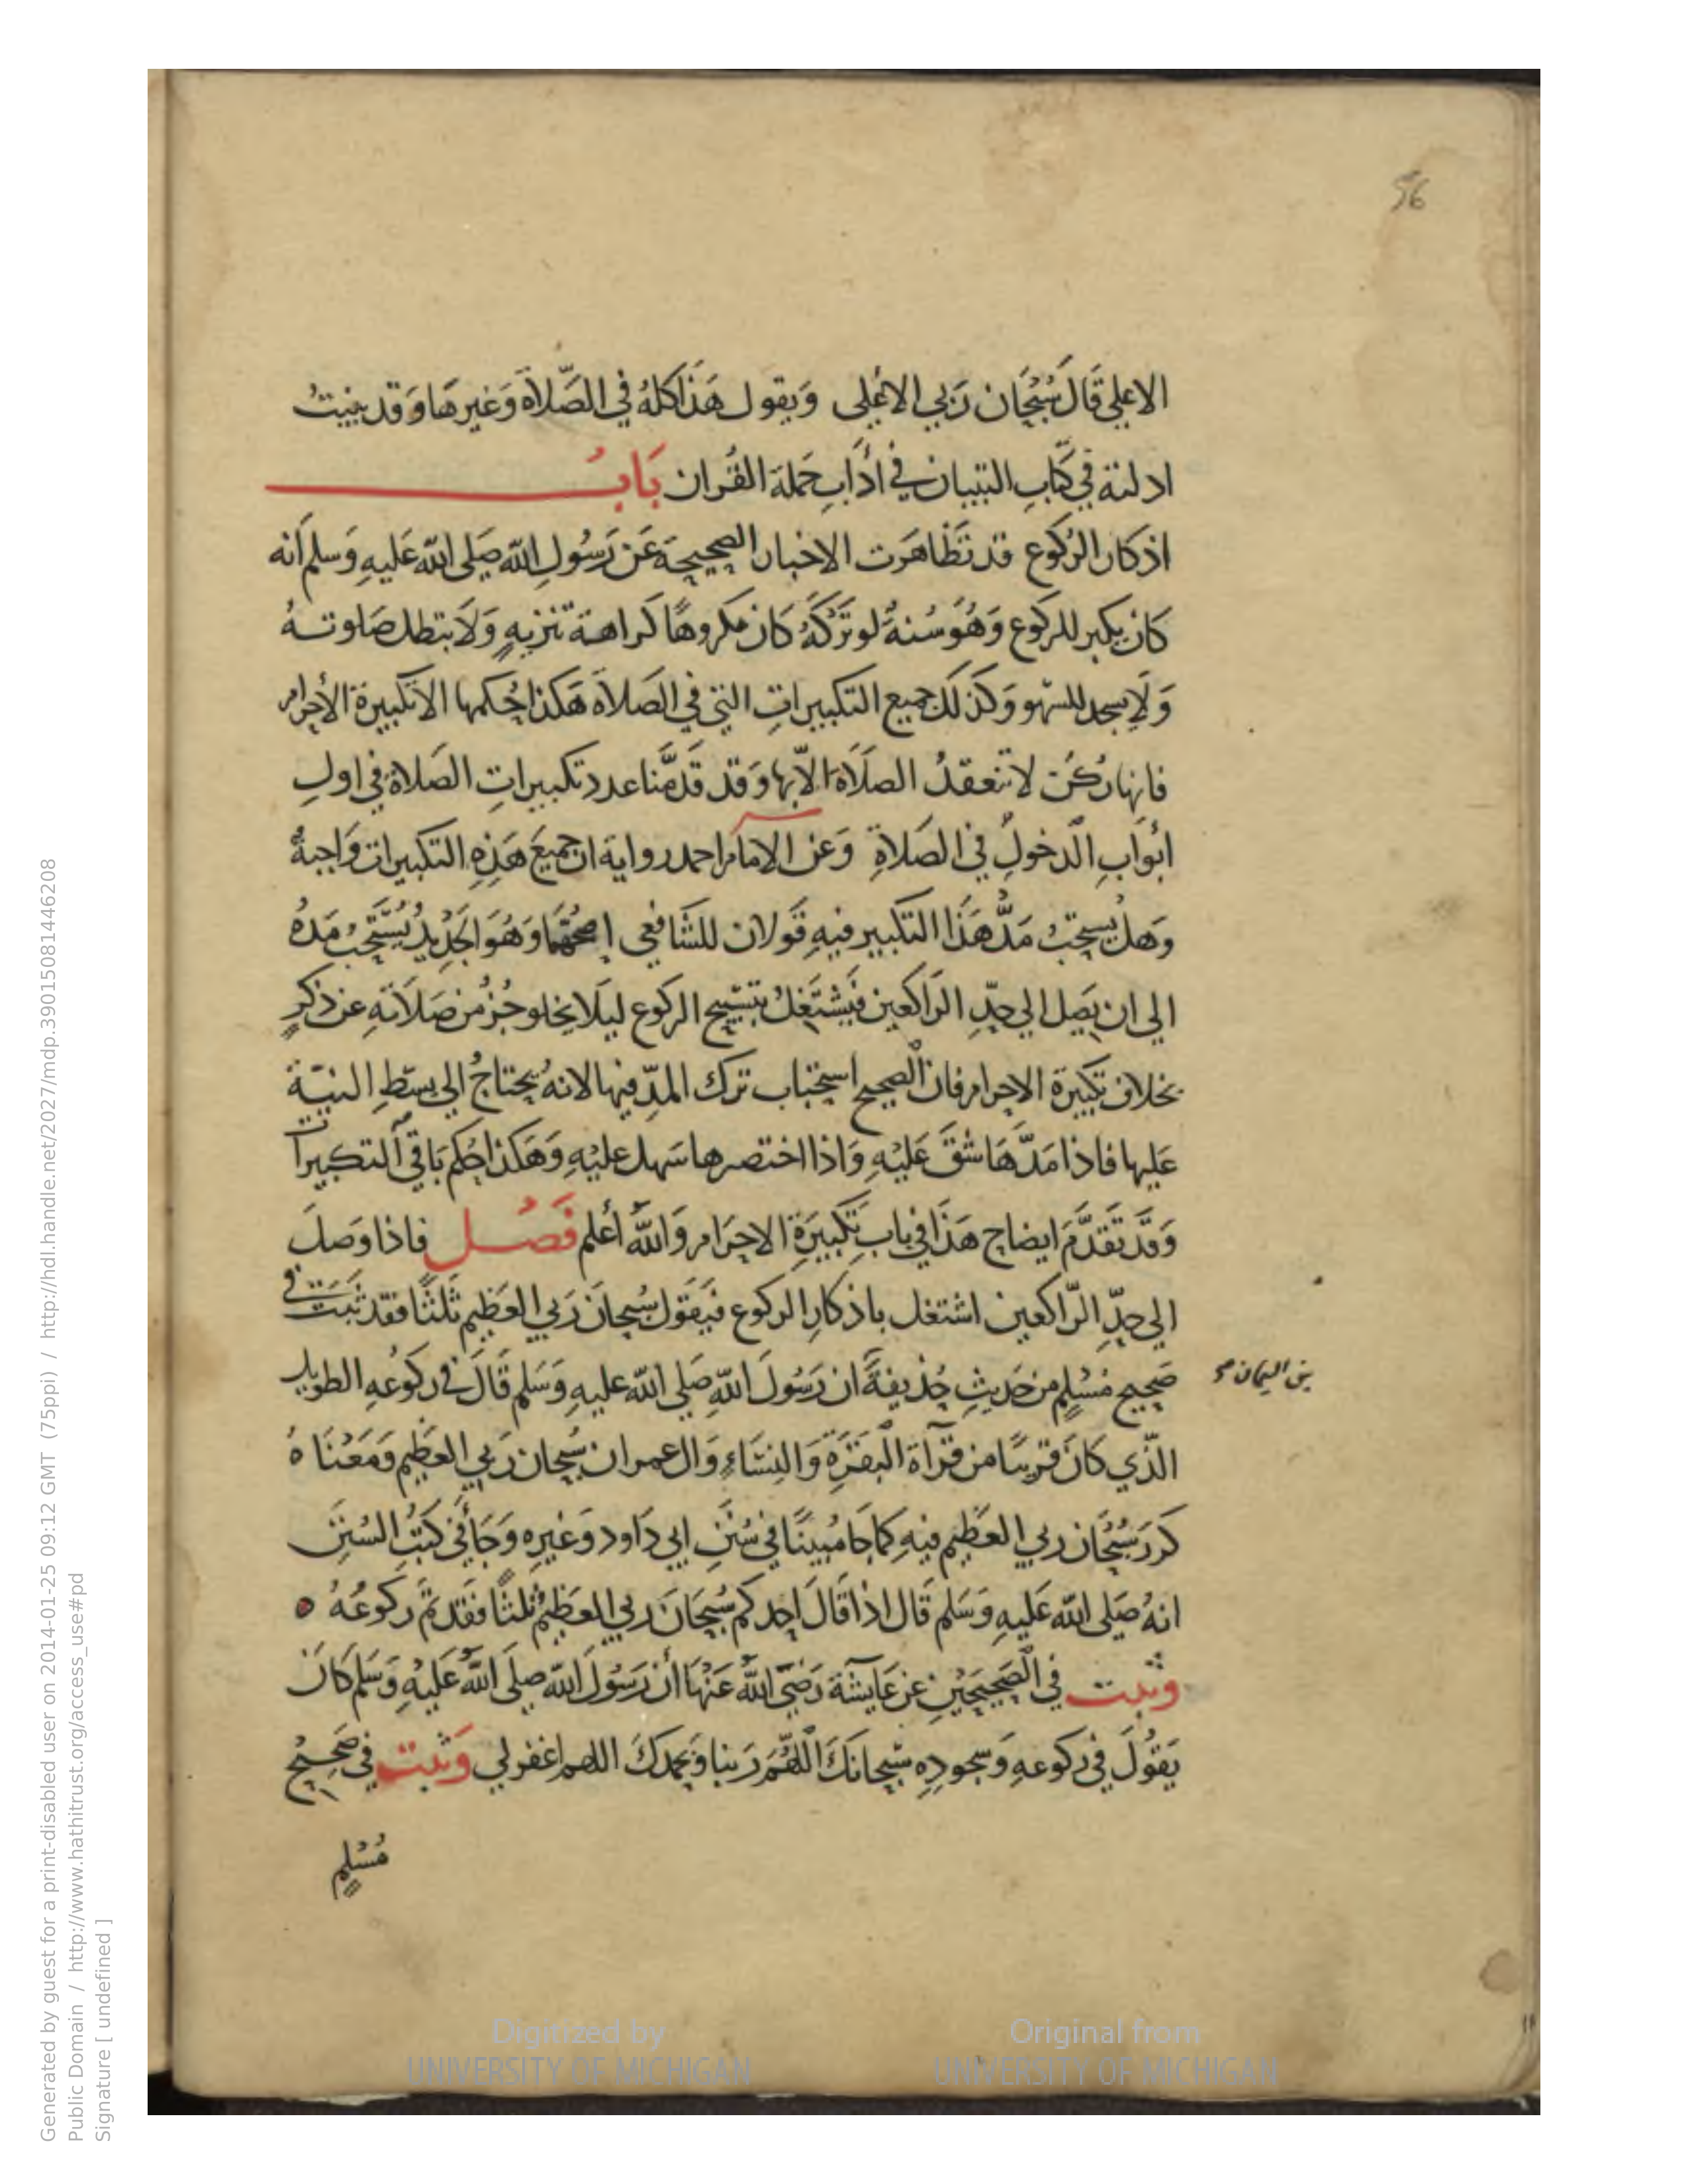 56
الاعلي قَالَ سُبْحَان رَبي الاعْلى وَيقول هَذَا كلهُ في الصَّلاَة وَغير هَا وَقد بينتُ
ادلته في كتَابِ التبيان في اٰدَابِ حَملة القُران بَابُ
اذكار الرُكوع قد تظَاهَرَت الاخبار الصحيحَة عَن رَسُولِ الله صَلى الله عَليهِ وَسلم أنه
كَان يكبر للركوع وَهُوَ سُنةٌ لو تَرَكَهُ كَان مكروهًا كراهة تنزيهٍ وَلاَ بتطل صَلوتهُ
وَلاَ يسجد للسّهو وَكذلكَ جميع التكبيراتِ التي في الصَلاَة هَكذا حُكمها الا تكبيرة الأحرام
فانها رُكنٌ لا تنعقدُ الصلاَة الاّ بها وَقد قَدمَّنا عدد تكبيراتِ الصلاة في اولِ
ابْوَابِ الدخولِ في الصَلاةِ وَعن الامام احمد رواية ان جميعَ هَذِهِ التكبيرات وَاجبةٌ
وَهل يسحتبُ مَدُّ هَذَا التكبير فيهِ قَولان للشَافعي اصحُهُمَا وَهُوَ الجَدِيدُ يُسْتَحَبُ مَدهُ
الي ان يَصِل الي حدِّ الرَاكعين فيَشْتَغلُ بتسبيح الركوع ليَلا يخلو جُزءٌ من صَلاَتهِ عن ذكرٍ
بخلاف تكبيرة الاحرام فان الصحيح استحباب ترك المدّ فيها لانهُ يحتاجُ الي بسَط النيّة
عَليها فاذا مَدَّهَا شقَّ عَليْهِ وَاذا اختصرها سَهل عليْهِ وَهَكذا حكم بَاقي التكبيرات
وَقد تَقدَّمَ ايضاح هَذَا في بابِ تكبيرَةِ الاحرَام وَاللهُ أعلم فَصْل فاذا وَصلَ
الي حدِّ الرّاكعين اشتغل باذكارِ الركوع فيَقول سُبحانَ رَبي العَظِيم ثَلثًا فقد ثبَتَ في
صَحيح مُسْلمٍ من حَديثِ حُذيفةَ ان رَسُولَ اللهِ صَلي الله عليهِ وَسَلم قَالَ في ركوعهِ الطويل
بن اليمان صح
الذّي كانَ قريبًا من قرآة البَقرَة وَالنسَاءِ وَال عمران سُبحان رَبي العَظِيم وَمَعْنَاهُ
كررَ سُبْحَان ربي العظِيم فيهِ كما جَا مُبينًا في سُنَنِ ابي دَاود وَغيره وَجَا في كتبُ السُنَنِ
انهُ صَلى الله عَليهِ وَسَلم قَال اذا قَالَ احدكم سُبحَانَ ربي العَظيمُ ثلثًا فقَد تمَّ ركوعُهُ ه
وثبت في الصَحيحَيْنِ عن عَايشَة رَضيَ اللهُ عَنْهَا أن رَسُولَ الله صلى اللهُ عَليْهِ وَسَلم كان
يَقُولَ في ركوعهِ وَسجودِه سُبحانكَ اللّهُمَ رَبنا وَبحمدكَ اللهم اغفرلي وَثبت في صَحِيْح
مُسْلمٍ
Digitized by
UNIVERSITY OF MICHIGAN
Original from
UNIVERSITY OF MICHIGAN
Generated by guest for a print-disabled user on 2014-01-25 09:12 GMT (75ppi) / http://hdl.handle.net/2027/mdp.39015081446208
Public Domain / http://www.hathitrust.org/access_use#pd
Signature [ undefined ]